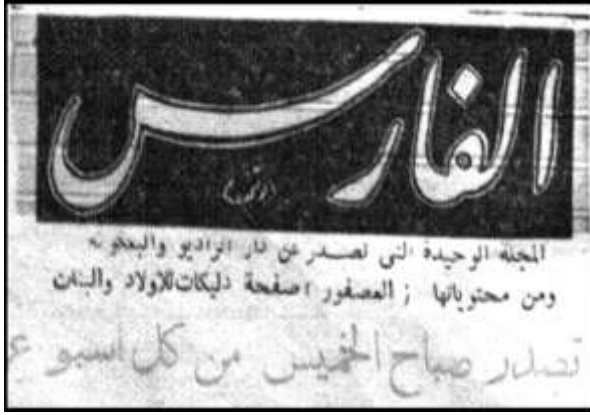 الفارس
المجلة الوحيدة التى تصدر عن دار الراديو والبعكوكه
ومن محتوياتها : العصفور ؛ صفحة دليكات للاولاد والبنات
تصدر صباح الخميس من كل اسبوع